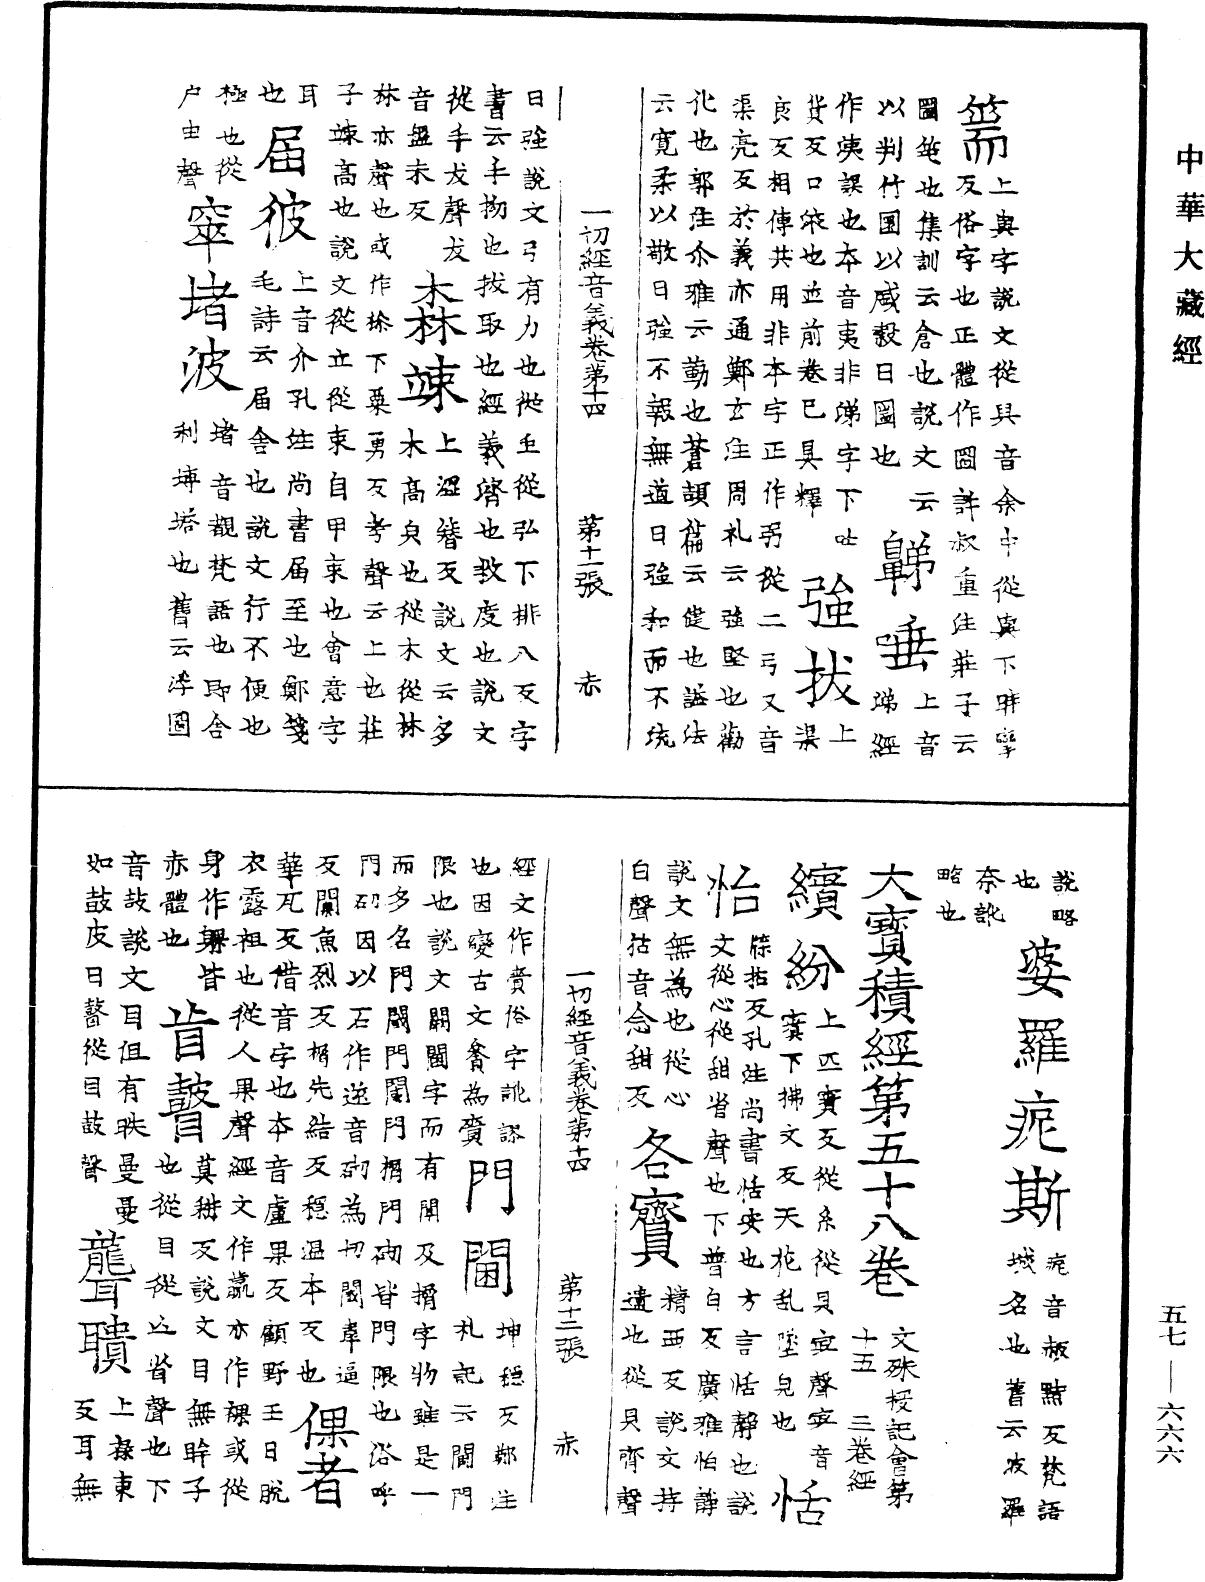 中華大藏經
圌 上輿字說文從貝音余中從輿下時掌
反俗字也正體作圌許叔重注莊子云
圌筳也集訓云倉也說文云
以判竹圍以盛穀曰圌也
鵜唾 上音
㖒經
作洟誤也本音夷非㖒字下吐
貨反口液也並前卷已具釋
強拔 上
渠
良反相傳共用非本字正作弜從二弓又音
渠亮反於義亦通鄭玄注周礼云強堅也勸
化也郭注介雅云勤也蒼頡篇云健也謚法
云寬柔以敬曰強不報無道曰強和而不流
一切經音義卷第十四 第十一張 赤
曰強說文弓有力也從虫從弘下排八反字
書云手拗也拔取也經義濟也教度也說文
從手犮聲犮
音盤末反
森竦 上澀簪反說文云多
木高皃也從木從林
林亦聲也或作槮下粟勇反考聲云上也莊
子竦高也說文從立從束自申束也會意字
耳
也
届彼 上音介孔注尚書届至也鄭箋
毛詩云届舍也說文行不便也
極也從
户由聲
窣堵波 堵音覩梵語也即舍
利塼塔也舊云浮圖
說略
也
奈訛
略也
婆羅痆斯 痆音赧黠反梵語
城名也舊云波羅
大寶積經第五十八卷 文殊授記會第
十五 三卷經
繽紛 上匹賓反從糸從貝㝉聲㝉音
賓下拂文反天花亂墜皃也
恬
怡 牒拈反孔注尚書恬安也方言恬靜也說
文從心從甜省聲也下普白反廣雅怕靜
說文無為也從心
白聲拈音念甜反
各齎 精西反說文持
遺也從貝齊聲
一切經音義卷第十四 第十二張 赤
經文作賫俗字訛謬
也因變古文賷為齎
門閫 坤穩反鄭注
礼記云閫門
限也說文闢閫字而有閞及榍字物雖是一
而多名門閾門閫門榍門砌皆門限也俗呼
門砌因以石作遂音砌為切閾韋逼
反闑魚烈反榍先結反穩温本反也
倮者
華瓦反借音字也本音盧果反顧野王曰脫
衣露袒也從人果聲經文作羸亦作裸或從
身作躶皆
赤體也
盲瞽 莫耕反說文目無眸子
也從目從亡省聲也下
音鼓說文目但有眹曼曼
如鼓皮曰瞽從目鼓聲
聾聵 上祿東
反耳無
五七—六六六